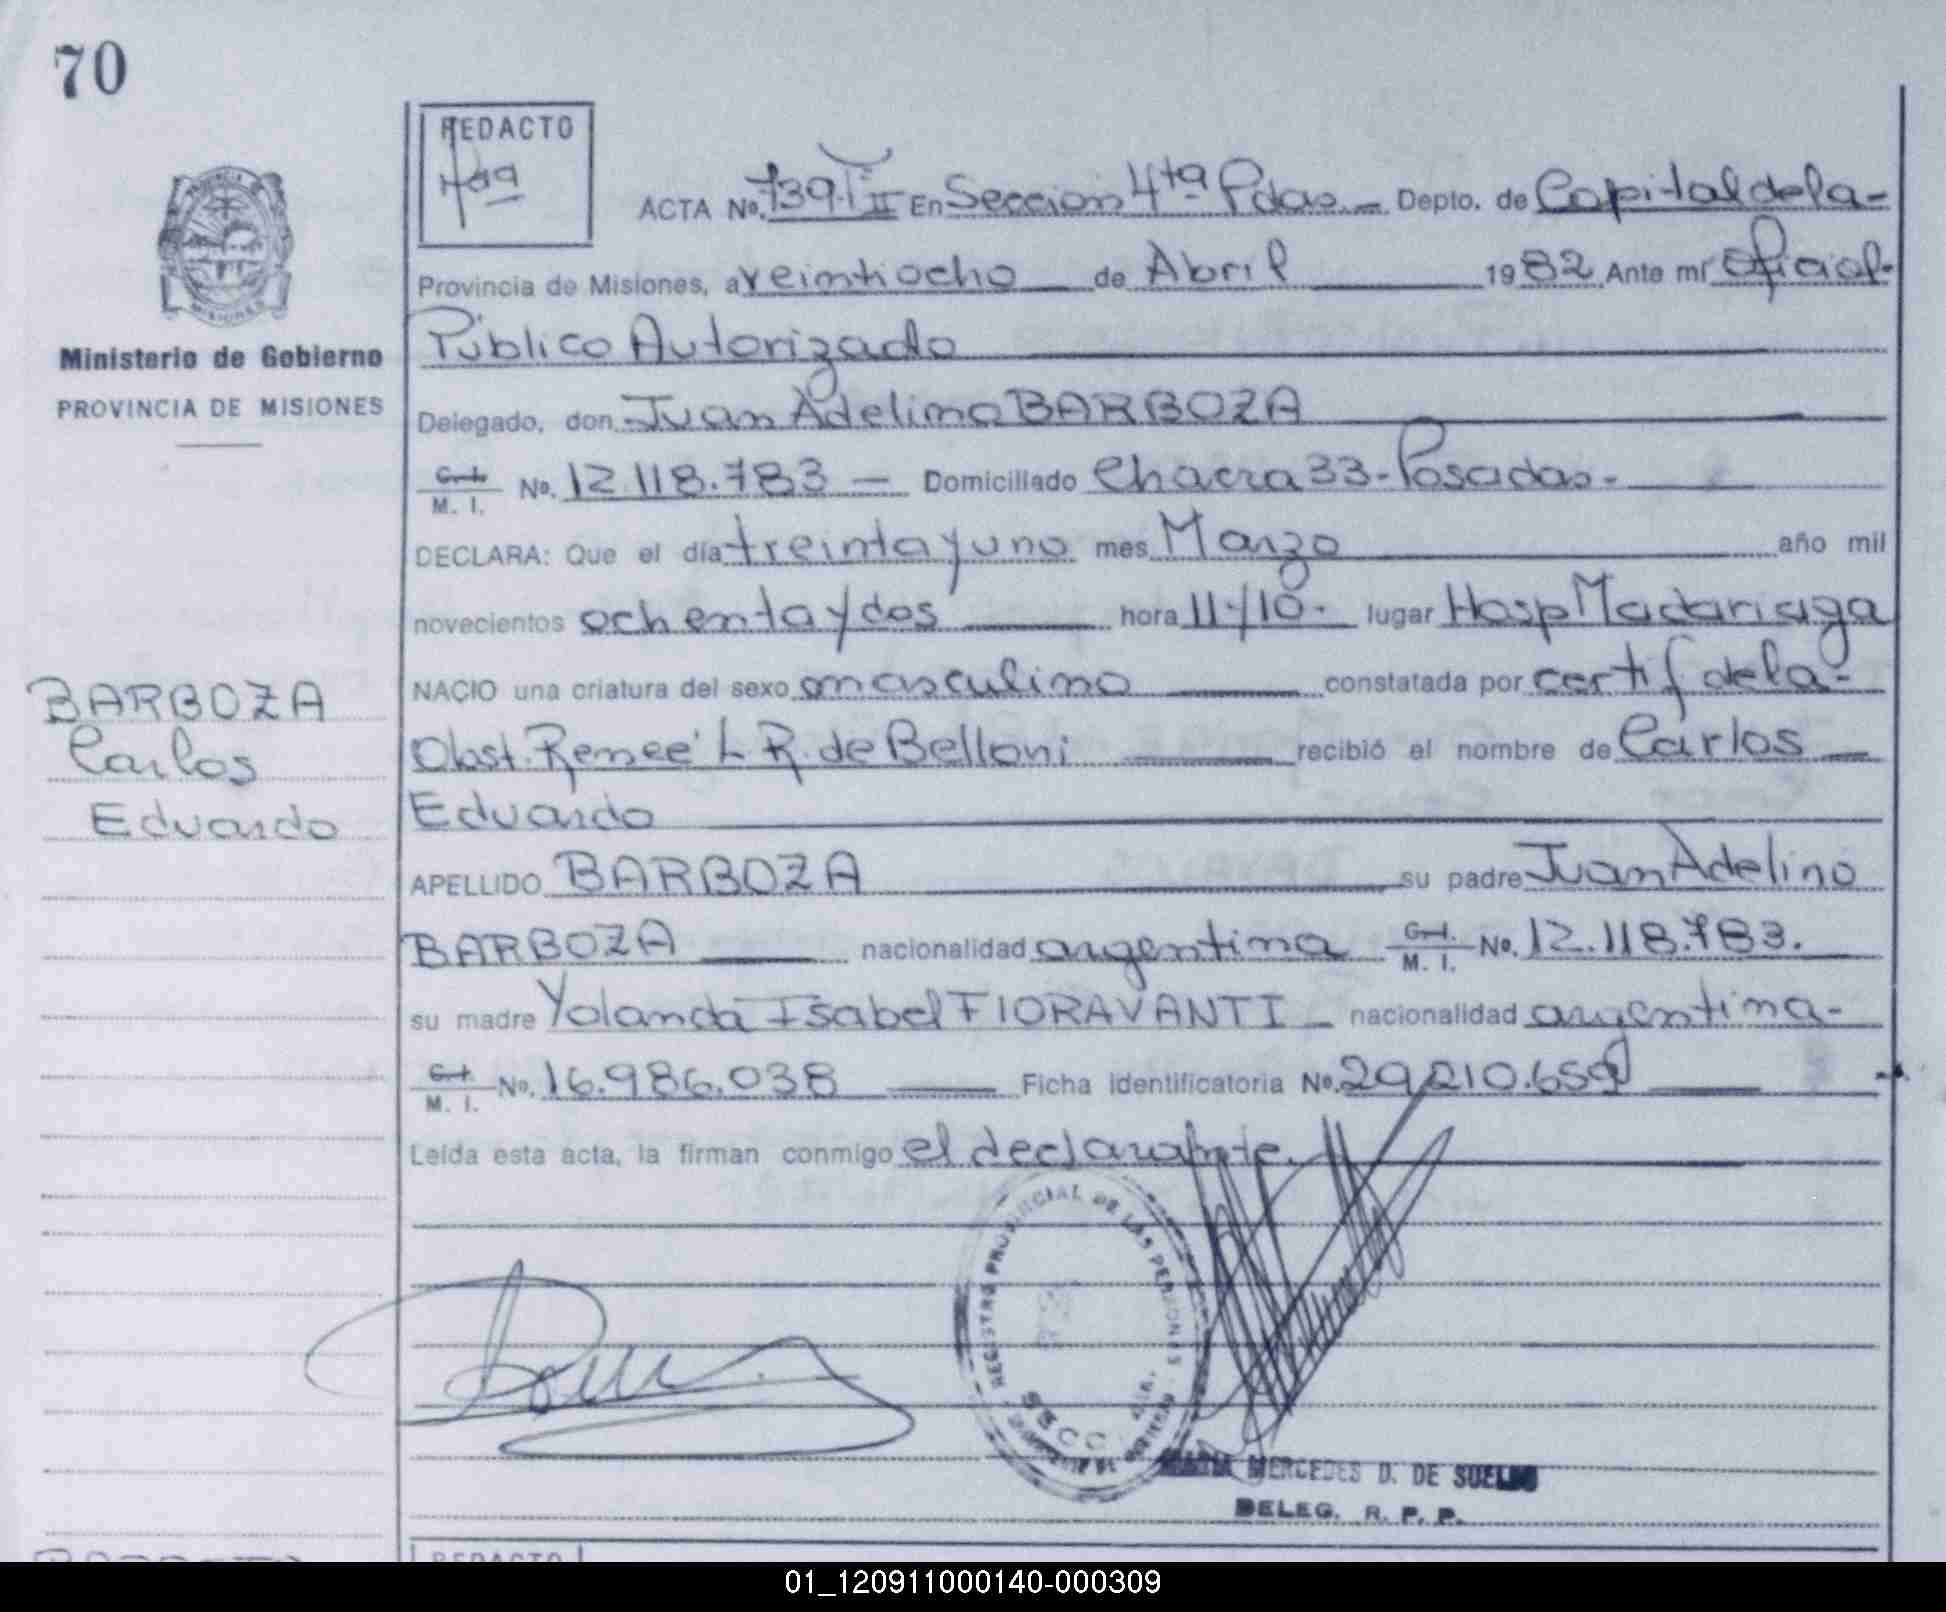 70
REDACTO
ACTA No. 739. T II En Sección 4ta Pdas. - Depto. de Capital de la -
Provincia de Misiones, a veintiocho de Abril 1982 Ante mí Oficial -
Público Autorizado
Delegado, don Juan Adelino BARBOZA
C. I. M. I. No. 12.118.783 - Domiciliado Chacra 33 - Posadas -
DECLARA: Que el día treinta y uno mes Marzo año mil
novecientos ochenta y dos hora 11y10 - lugar Hosp Madariaga
NACIO una criatura del sexo masculino constatada por certif de la -
Obst. Reneé L R. de Belloni recibió el nombre de Carlos
Eduardo
APELLIDO BARBOZA su padre Juan Adelino
BARBOZA nacionalidad argentina C. I. M. I. No. 12.118.783.
su madre Yolanda Isabel FIORAVANTI - nacionalidad argentina -
C. I. M. I. No. 16.986.038 Ficha Identificatoria No. 29.210.659
Leída esta acta, la firman conmigo el declarante.
PROVINCIA DE MISIONES
Ministerio de Gobierno
PROVINCIA DE MISIONES
BARBOZA
Carlos
Eduardo
REGISTRO PROVINCIAL DE LAS PERSONAS
SECC. 4ta.
MERCEDES D. DE SUELDO
DELEG. R. P. P.
REDACTO
01_120911000140-000309